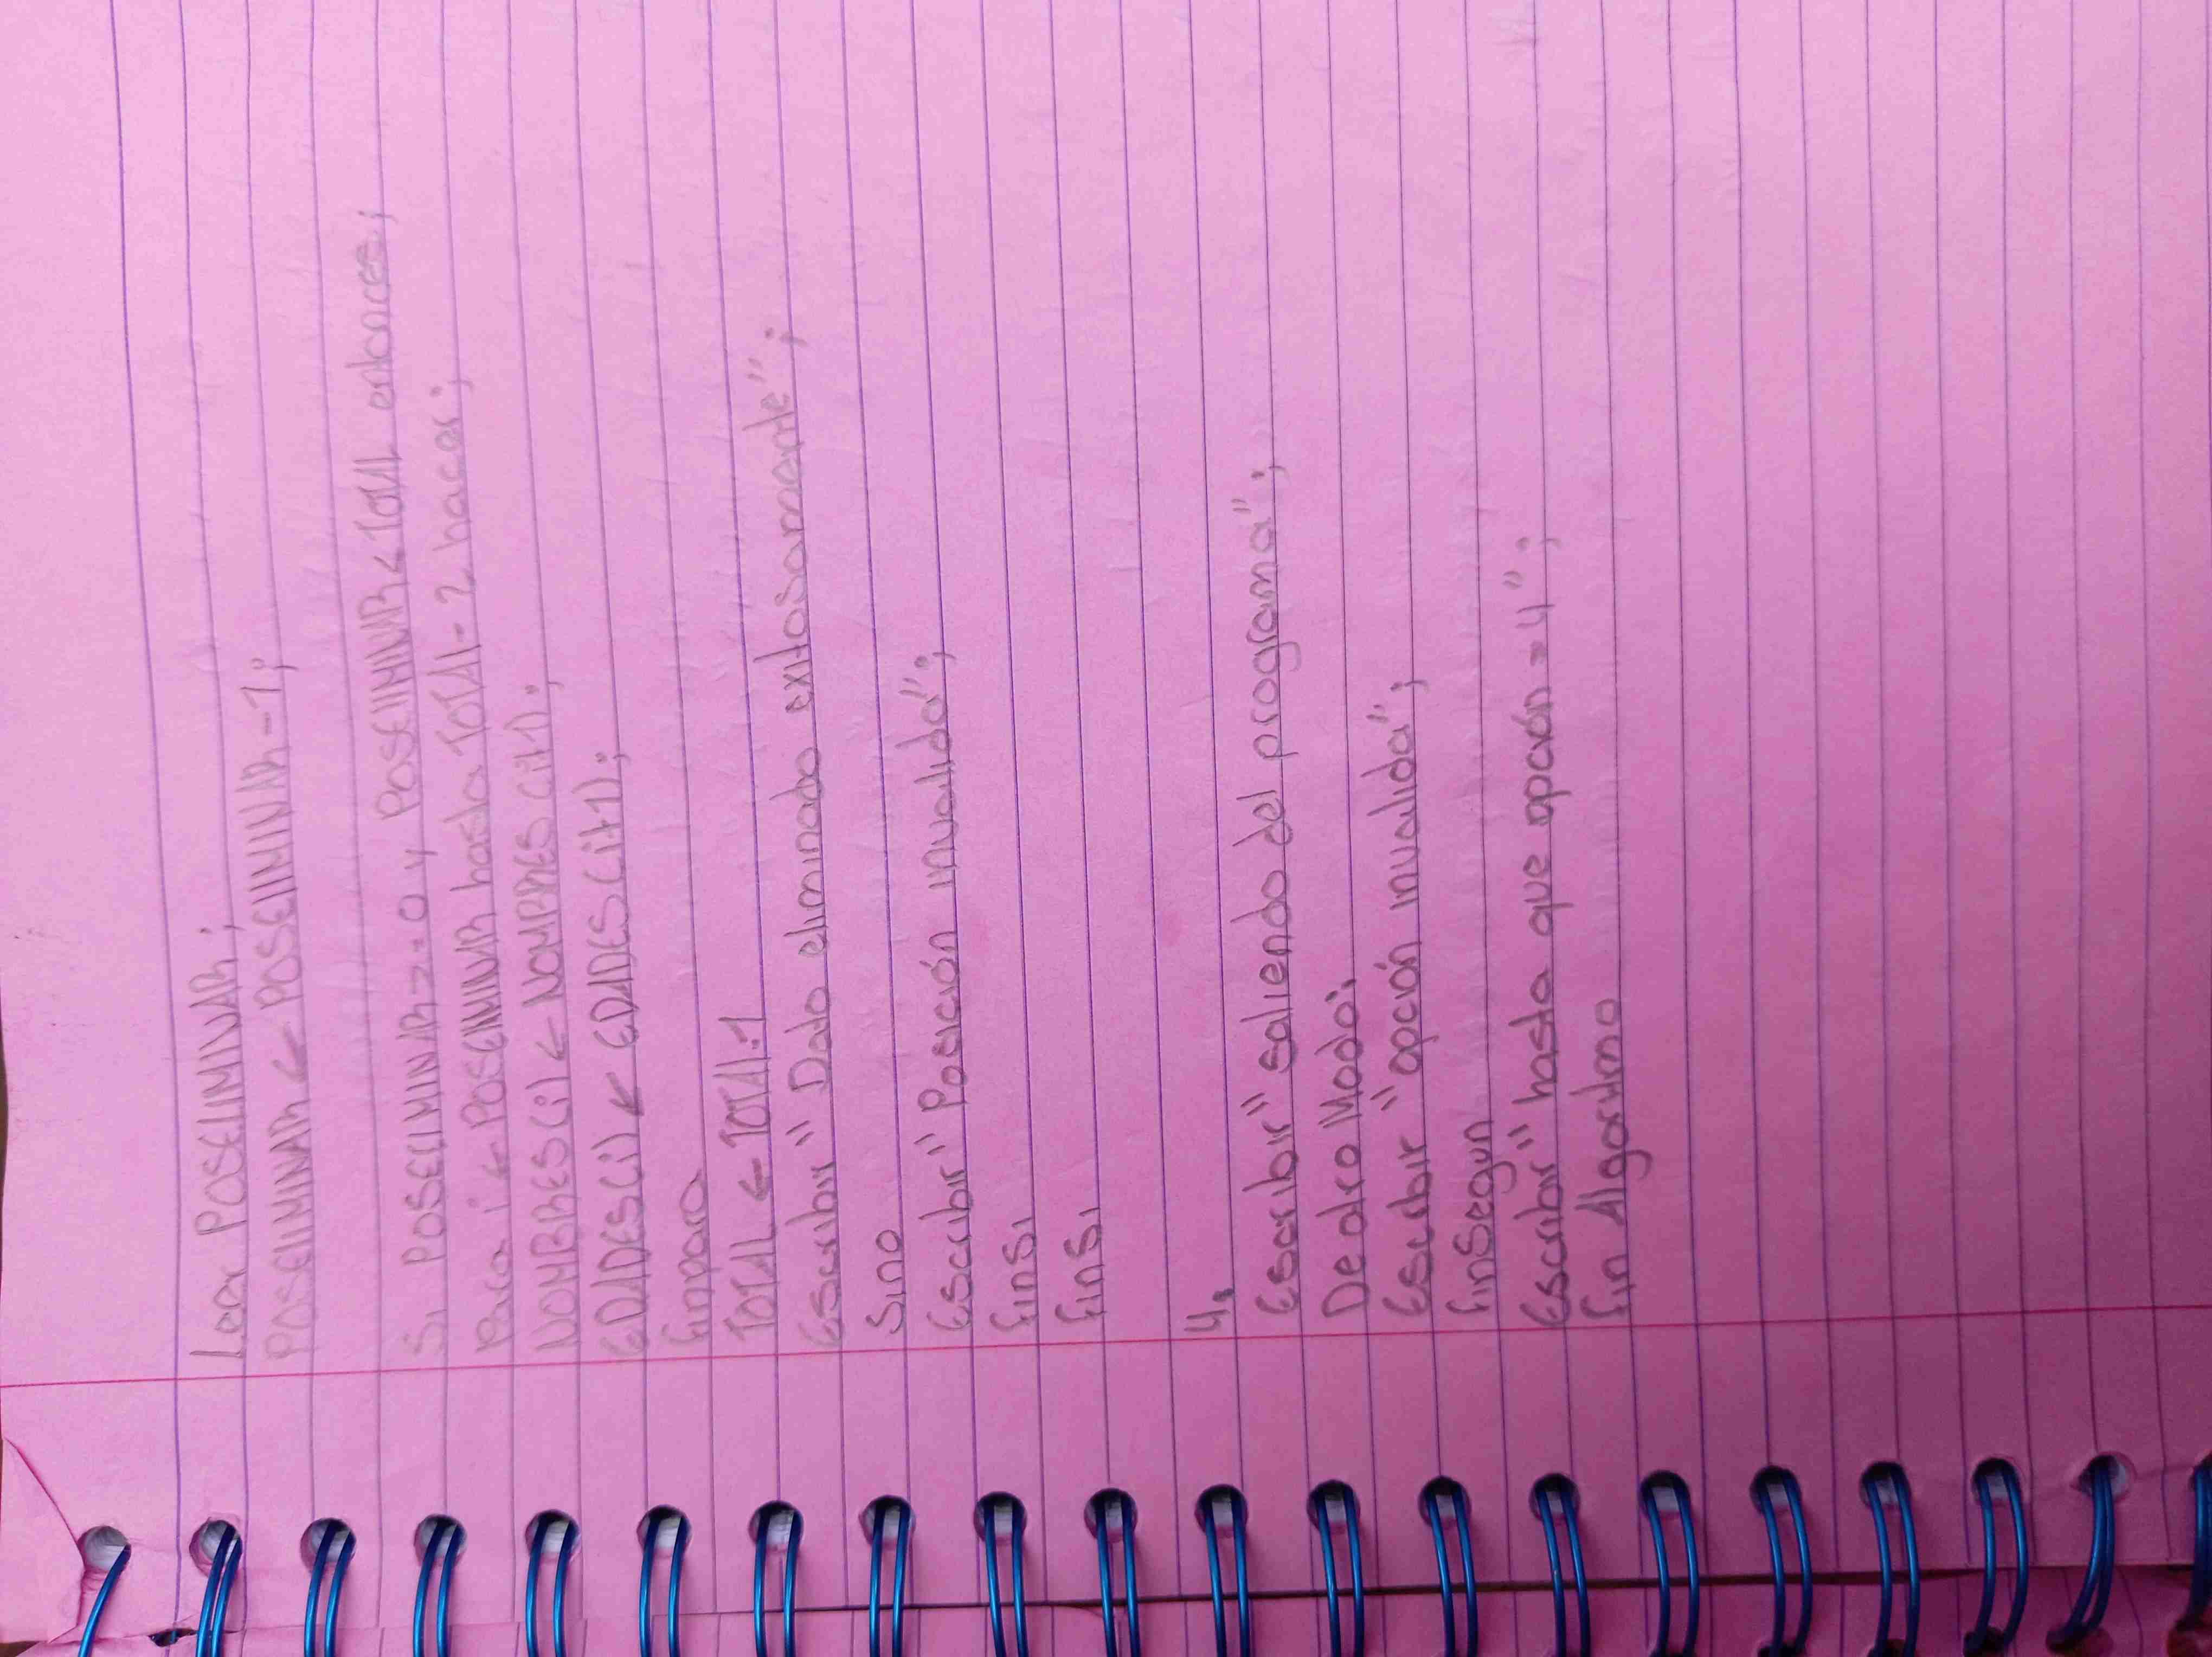 Leer POSELIMINAR;
POSELIMINAR ← POSELIMINAR-1;
Si POSELMINAR>=0 y POSELIMINAR<TOTAL entonces;
Para i ← POSELMINAR hasta TOTAL-2 hacer;
NOMBRES(i) ← NOMBRES(i+1);
EDADES(i) ← EDADES(i+1);
Finpara
TOTAL ← TOTAL-1
Escribir "Dato eliminado exitosamente";
Sino
Escribir "Posición invalida";
FinSi
FinSi
4:
Escribir "saliendo del programa";
De otro Modo:
Escribir "opción invalida";
FinSegun
Escribir "hasta que opción = 4";
Fin Algoritmo